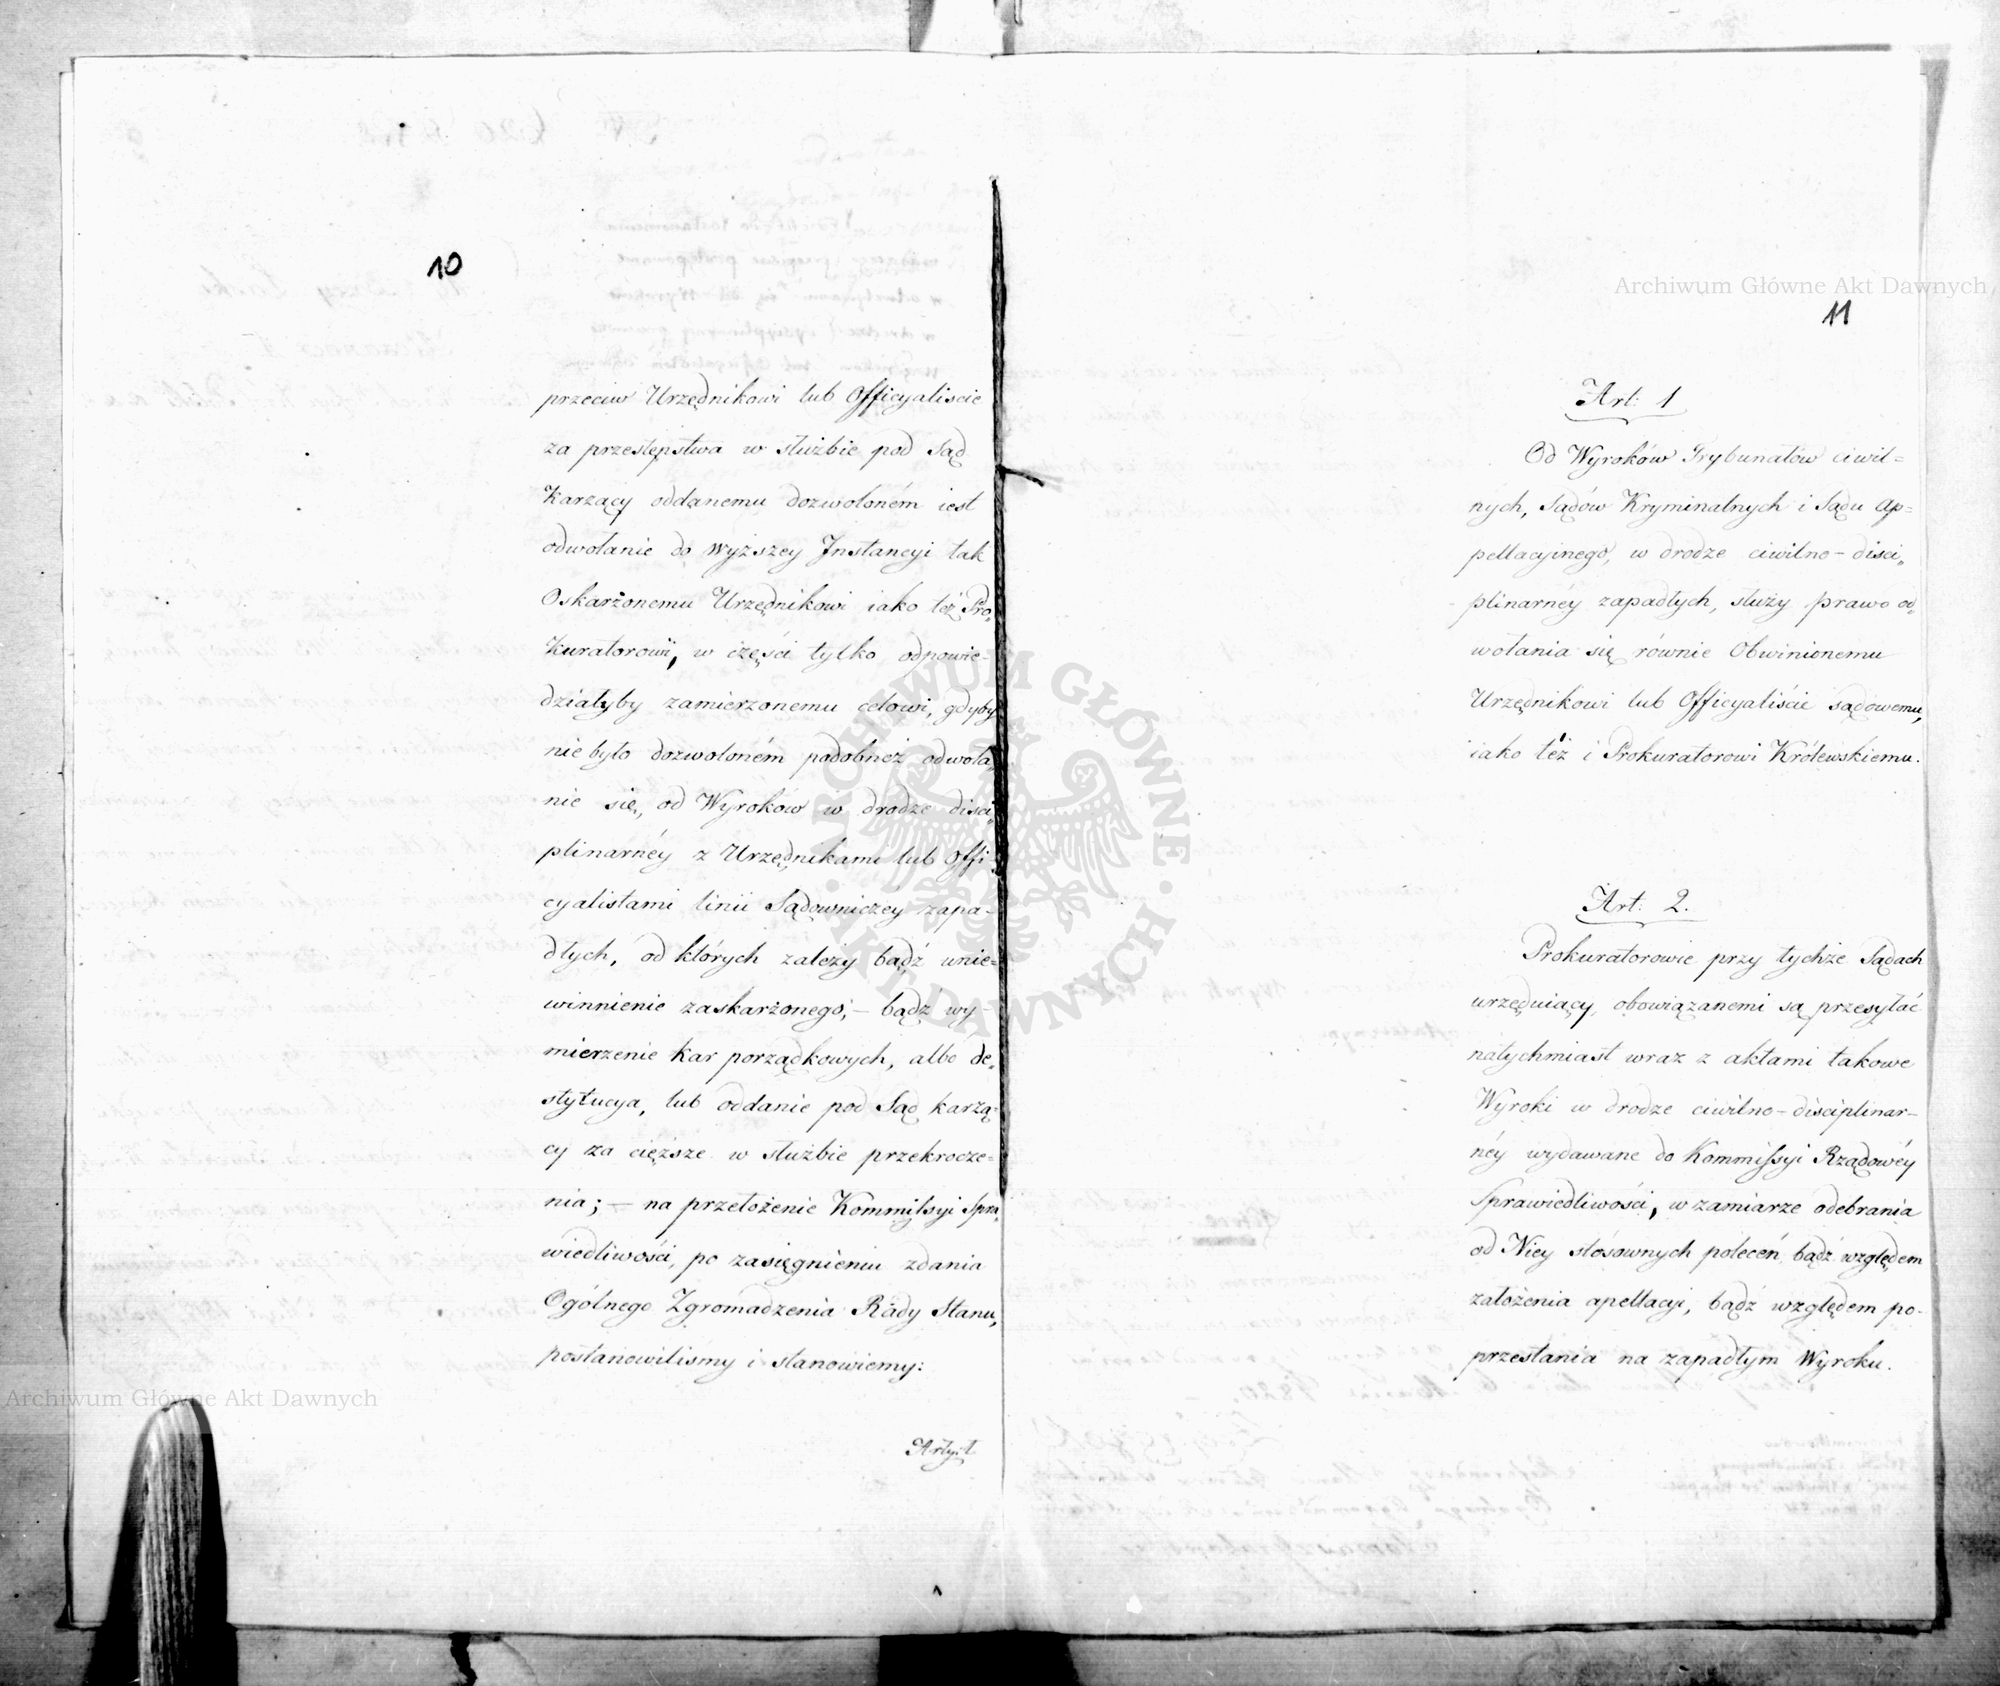 10
przeciw Urzędnikowi lub Officyaliscie
za przestępstwa w służbie pod Sąd
Karzący oddanemu dozwoloném iest
odwołanie do wyższey Instancyi tak
Oskarżonemu Urzędnikowi iako też Pro„
kuratorowi, w części tylko odpowie-
działyby zamierzonemu celowi, gdyby
nie było dozwoloném podobnéż odwoła„
nie się, od Wyroków w drodze disci„
plinarnéy z Urzędnikami lub Offi-
cyalistami linii Sądowniczey zapa-
dłych, od których zależy bądź unie-
winnienie zaskarżonego; — bądź wy-
mierzenie kar porządkowych, albo de„
stytucya, lub oddanie pod Sąd karzą-
cy za cięższe w służbie przekrocze-
nia; — na przełożenie Kommissyi Spra„
wiedliwości, po zasięgnieniu zdania
Ogólnego Zgromadzenia Rady Stanu,
postanowiliśmy i stanowiemy:
Arty: 1
11
Art: 1
Od Wyroków Trybunałów ciwil=
nych, Sądów Kryminalnych i Sądu Ap=
pellacyinego, w drodze ciwilno-disci„
plinarnéy zapadłych, służy prawo od„
wołania się równie Obwinionemu
Urzędnikowi lub Officyaliście sądowemu,
iako też i Prokuratorowi Królewskiemu.
Art: 2.
Prokuratorowie przy tychże Sądach
urzęduiący, obowiązanemi są przesyłać
natychmiast wraz z aktami takowe
Wyroki w drodze ciwilno-disciplinar-
néy wydawane do Kommissyi Rządowéy
Sprawiedliwości, w zamiarze odebrania
od Niey stósownych poleceń, bądź względem
założenia apellacyi, bądź względem po-
przestania na zapadłym Wyroku.
Archiwum Główne Akt Dawnych
Archiwum Główne Akt Dawnych
ARCHIWUM GŁÓWNE AKT DAWNYCH